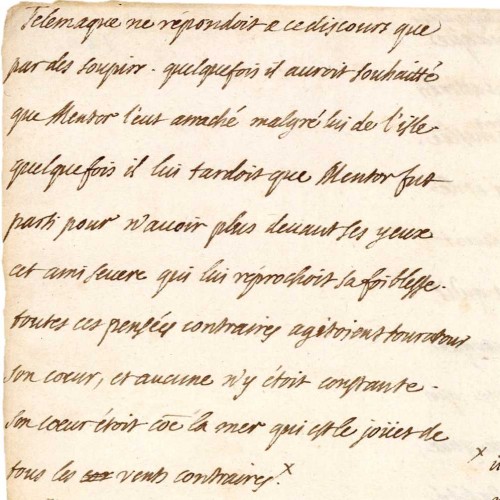 Telemaque ne répondoit a ce discours que
par des soupirs. quelquefois il auroit souhaitté
que Mentor l'eut arraché malgré lui de l'isle
quelquefois il lui tardoit que Mentor fut
parti pour n'avoir plus devant ses yeux
cet ami severe qui lui réprochoit sa foiblesse.
toutes ces pensées contraires agitoient tour a tour
son coeur, et aucune n'y étoit constante.
son coeur étoit coē la mer qui est le joüet de
tous les vents contraires.x
x